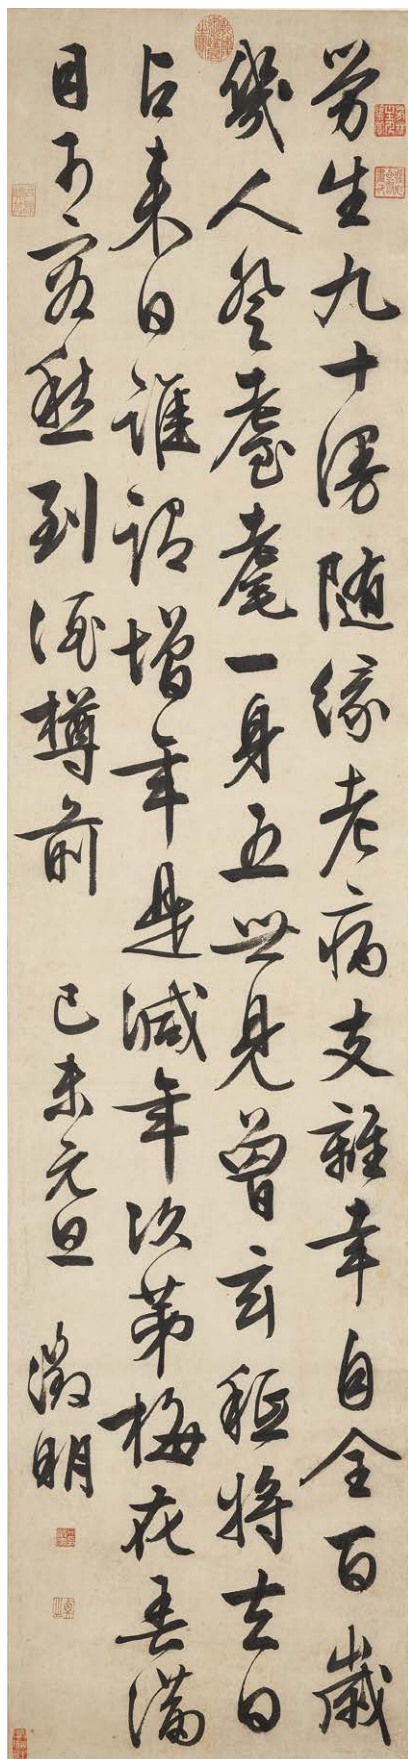 勞生九十漫随緣老病支離幸自全百歲
幾人登耋耄一身五世見曾玄秪將去日
占来日誰謂增年是減年次第梅花春滿
目可容愁到酒樽前 己未元旦 徵明